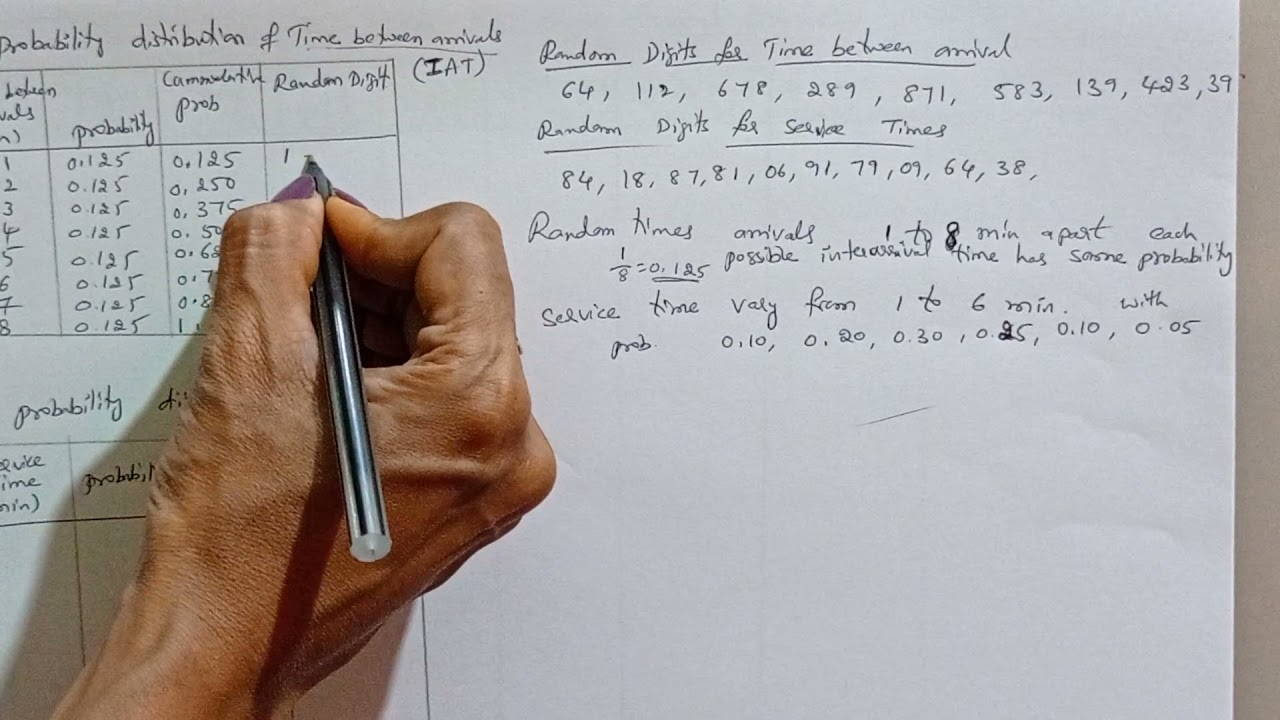 Probability distribution of Time between arrivals
(IAT)
between
probability
Cammulative
prob
Random Digit
1 0.125 0.125 1
2 0.125 0.250
3 0.125 0.375
4 0.125 0.50
5 0.125 0.62
6 0.125 0.7
7 0.125 0.8
8 0.125 1.
probability
service
time
min)
Random Digits for Time between arrival
64, 112, 678, 289, 871, 583, 139, 423, 39
Random Digits for Service Times
84, 18, 87, 81, 06, 91, 79, 09, 64, 38,
Random times arrivals 1 to 8 min apart each
1/8 = 0.125 possible interarrival time has same probability
service time vary from 1 to 6 min. with
prob. 0.10, 0.20, 0.30, 0.25, 0.10, 0.05